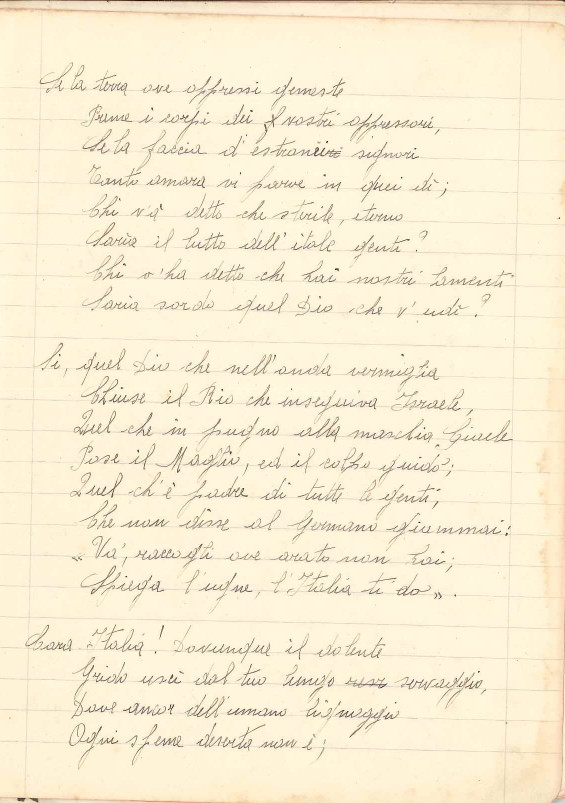 Se la terra ove oppressi gemeste
Preme i corpi dei vostri oppressori,
Se la faccia d'estranii signori
Tanto amara vi parve in quei dì;
Chi v'à detto che sterile, eterno
Sarìa il lutto dell'itale genti?
Chi v'ha detto che hai nostri lamenti
Saria sordo quel Dio che v'udì?
Si, quel Dio che nell'onda vermiglia
Chiuse il Rio che inseguiva Israele,
Quel che in pugno alla maschia Giaele
Pose il Maglio, ed il colpo guidò;
Quel ch'è padre di tutte le genti,
Che non disse al Germano giammai:
«Va', raccogli ove arato non hai;
Spiega l'ugne, l'Italia ti do».
Cara Italia! Dovunque il dolente
Grido uscì dal tuo lungo servaggio,
Dove ancor dell'umano lignaggio
Ogni speme deserta non è;